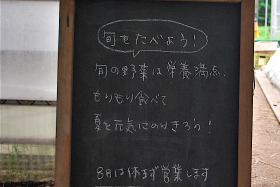 旬をたべよう!
旬の野菜は栄養満点。
もりもり食べて
夏を元気にのりきろう!
8月は休まず営業します